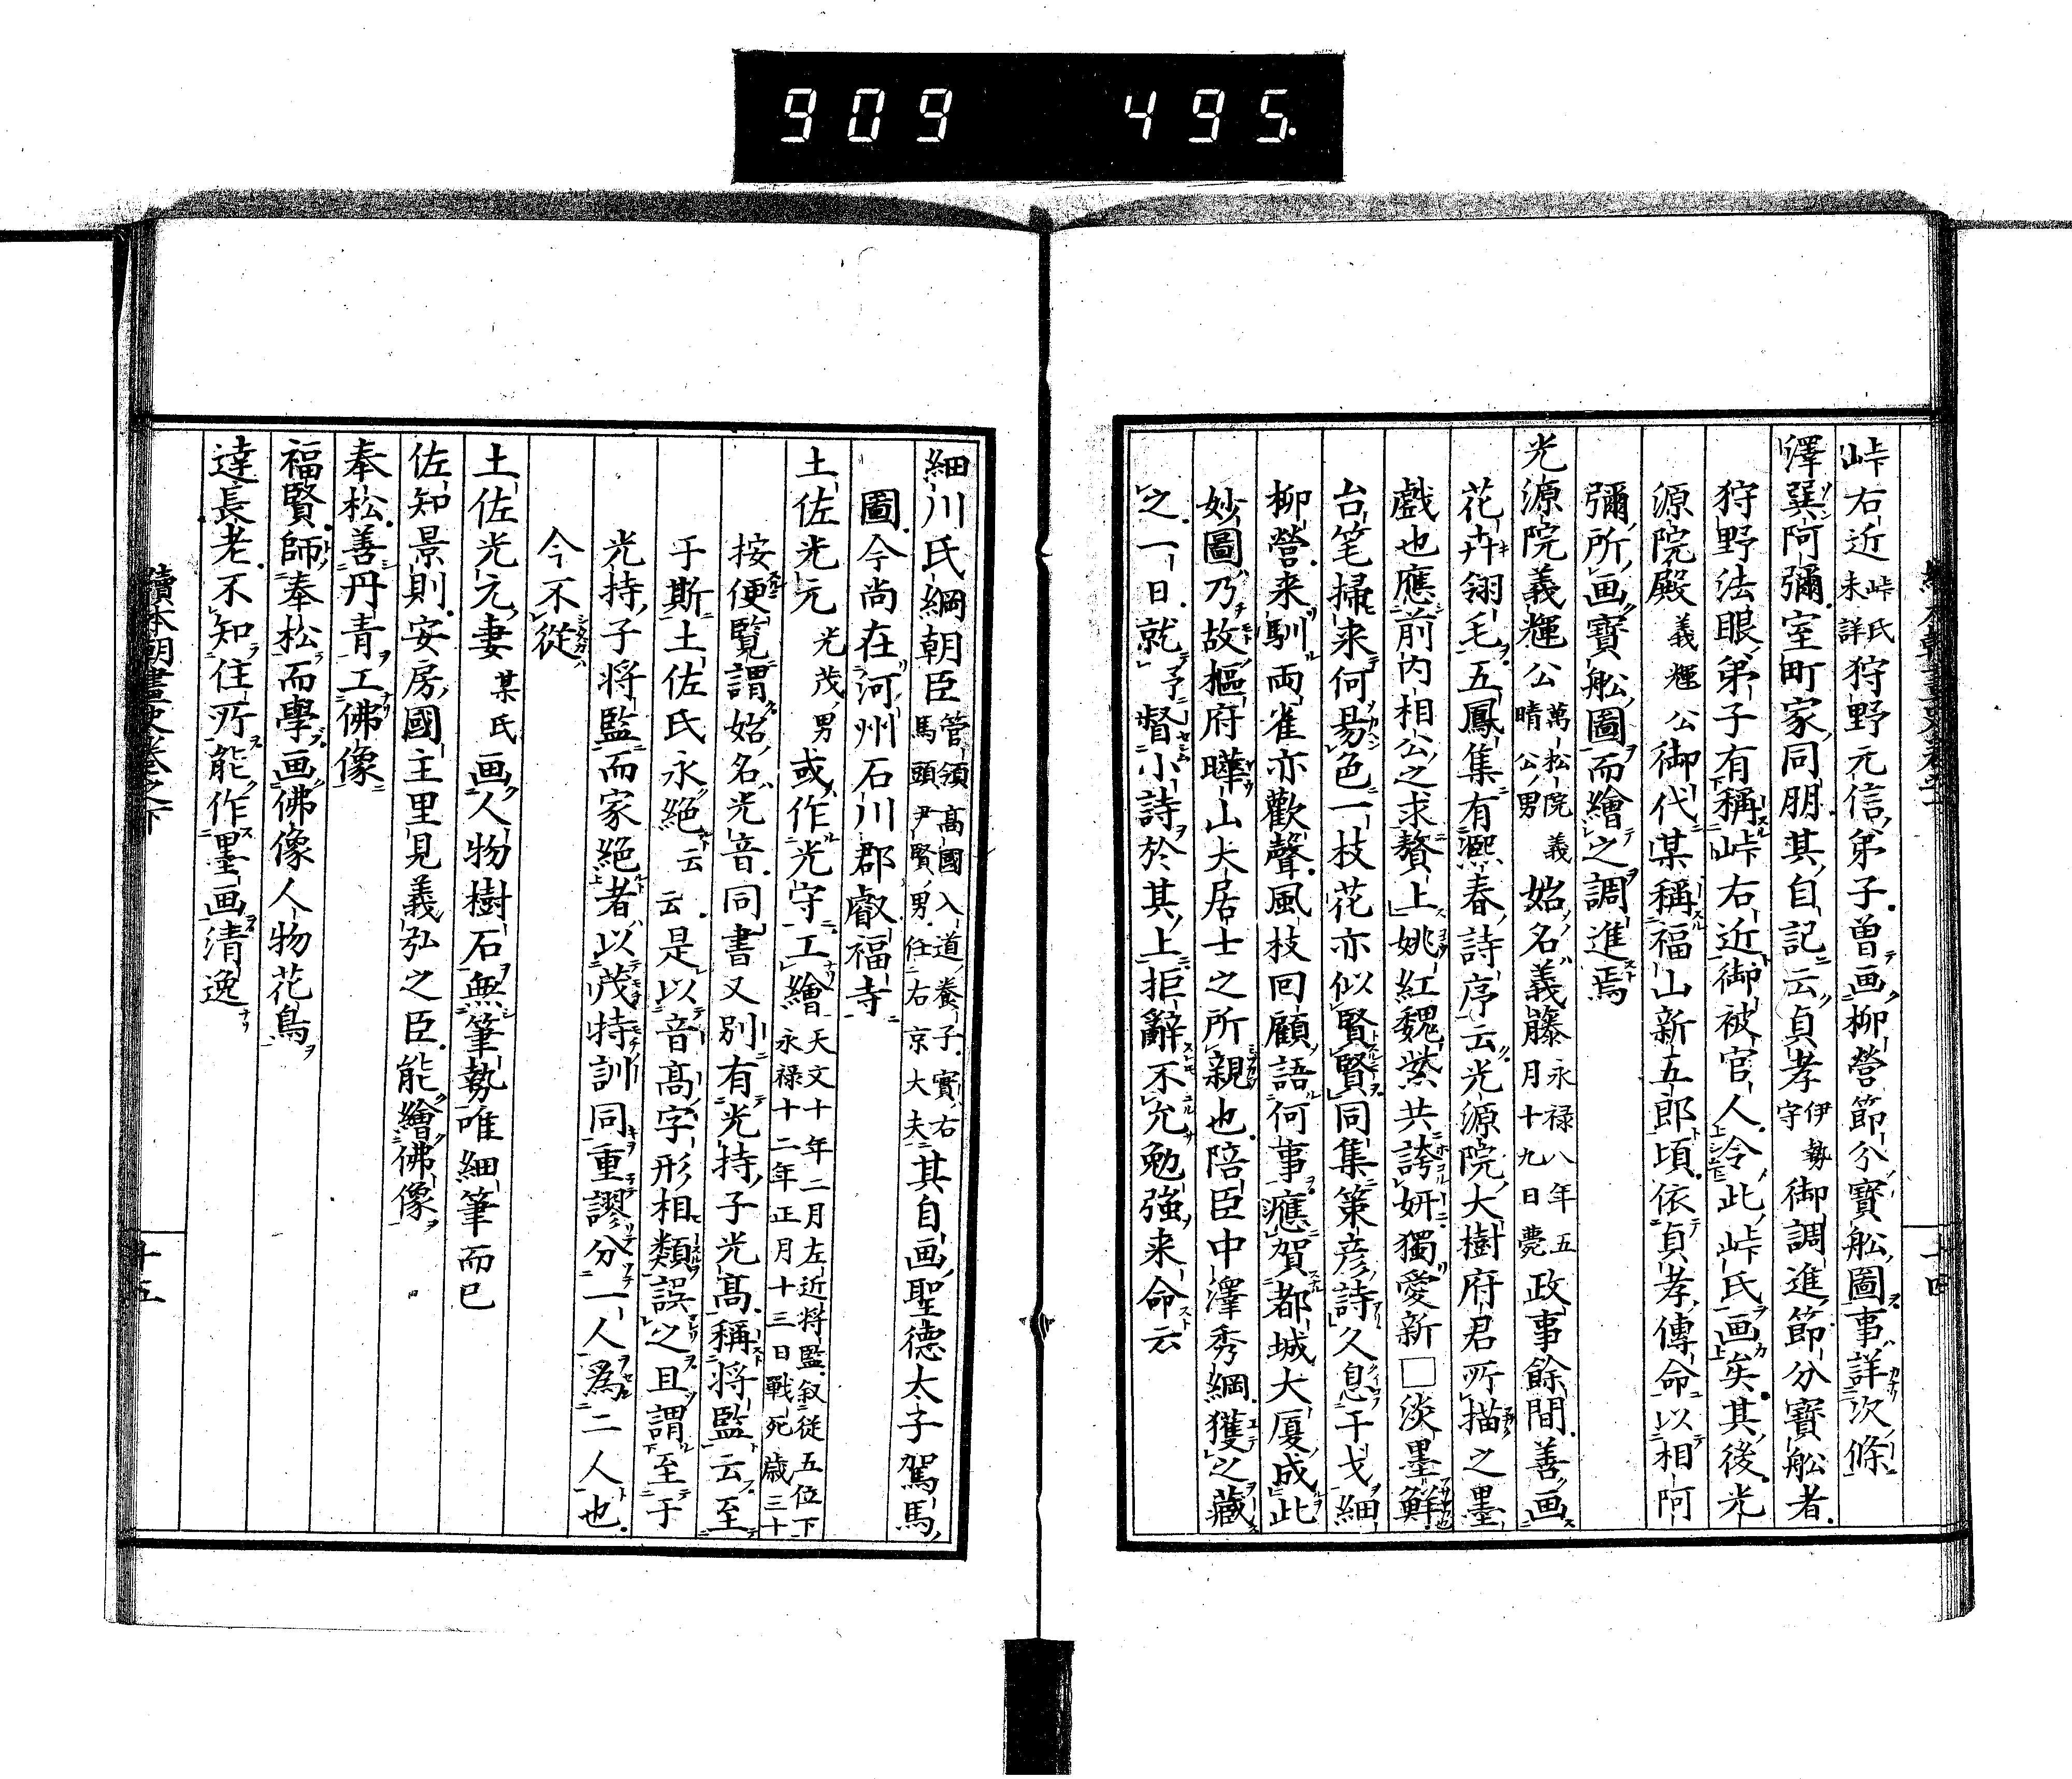 909 495
峠右近峠氏未詳狩野元信弟子曽画柳營節分寶舩圖事詳次條
澤巽阿彌室町家同朋其自記云貞孝伊勢守御調進節分寶舩者
狩野法眼弟子有稱峠右近御被官人令此峠氏画矣其後光
源院殿義輝公御代某稱福山新五郎頃依貞孝傳命以相阿
彌所画寶舩圖而繪之調進焉
光源院義輝公萬松院義晴公男始名義藤永禄八年五月十九日薨政事餘間善画
花卉翎毛五鳳集有凞春詩序云光源院大樹府君所描之墨
戲也應前内相公之求贅上姚紅魏紫共誇妍獨愛新□淡墨鮮
台笔掃来何易色一枝花亦似賢賢同集策彦詩久息干戈細
柳營来馴両雀亦歡聲風枝回顧語何事應賀都城大厦成此
妙圖乃故樞府曄山大居士之所親也陪臣中澤秀綱獲之藏
之一日就予督小詩於其上拒辭不允勉強来命云
細川氏綱朝臣管領高國入道養子實右馬頭尹賢男任右京大夫其自画聖德太子駕馬
圖今尚在河州石川郡叡福寺
土佐光元光茂男或作光守工繪天文十年二月左近将監叙從五位下永禄十二年正月十三日戰死歳三十
按便覧謂始名光音同書又别有光持子光高稱将監云至
于斯土佐氏永絕云云是以音高字形相類誤之且謂至于
光持子将監而家絕者以茂持訓同重謬分一人爲二人也
今不從
土佐光元妻某氏画人物樹石無筆勢唯細筆而已
佐知景則安房國主里見義弘之臣能繪佛像
奉松善丹青工佛像
福賢師奉松而學画佛像人物花鳥
達長老不知住所能作墨画清逸
續本朝畫史卷之下
十五